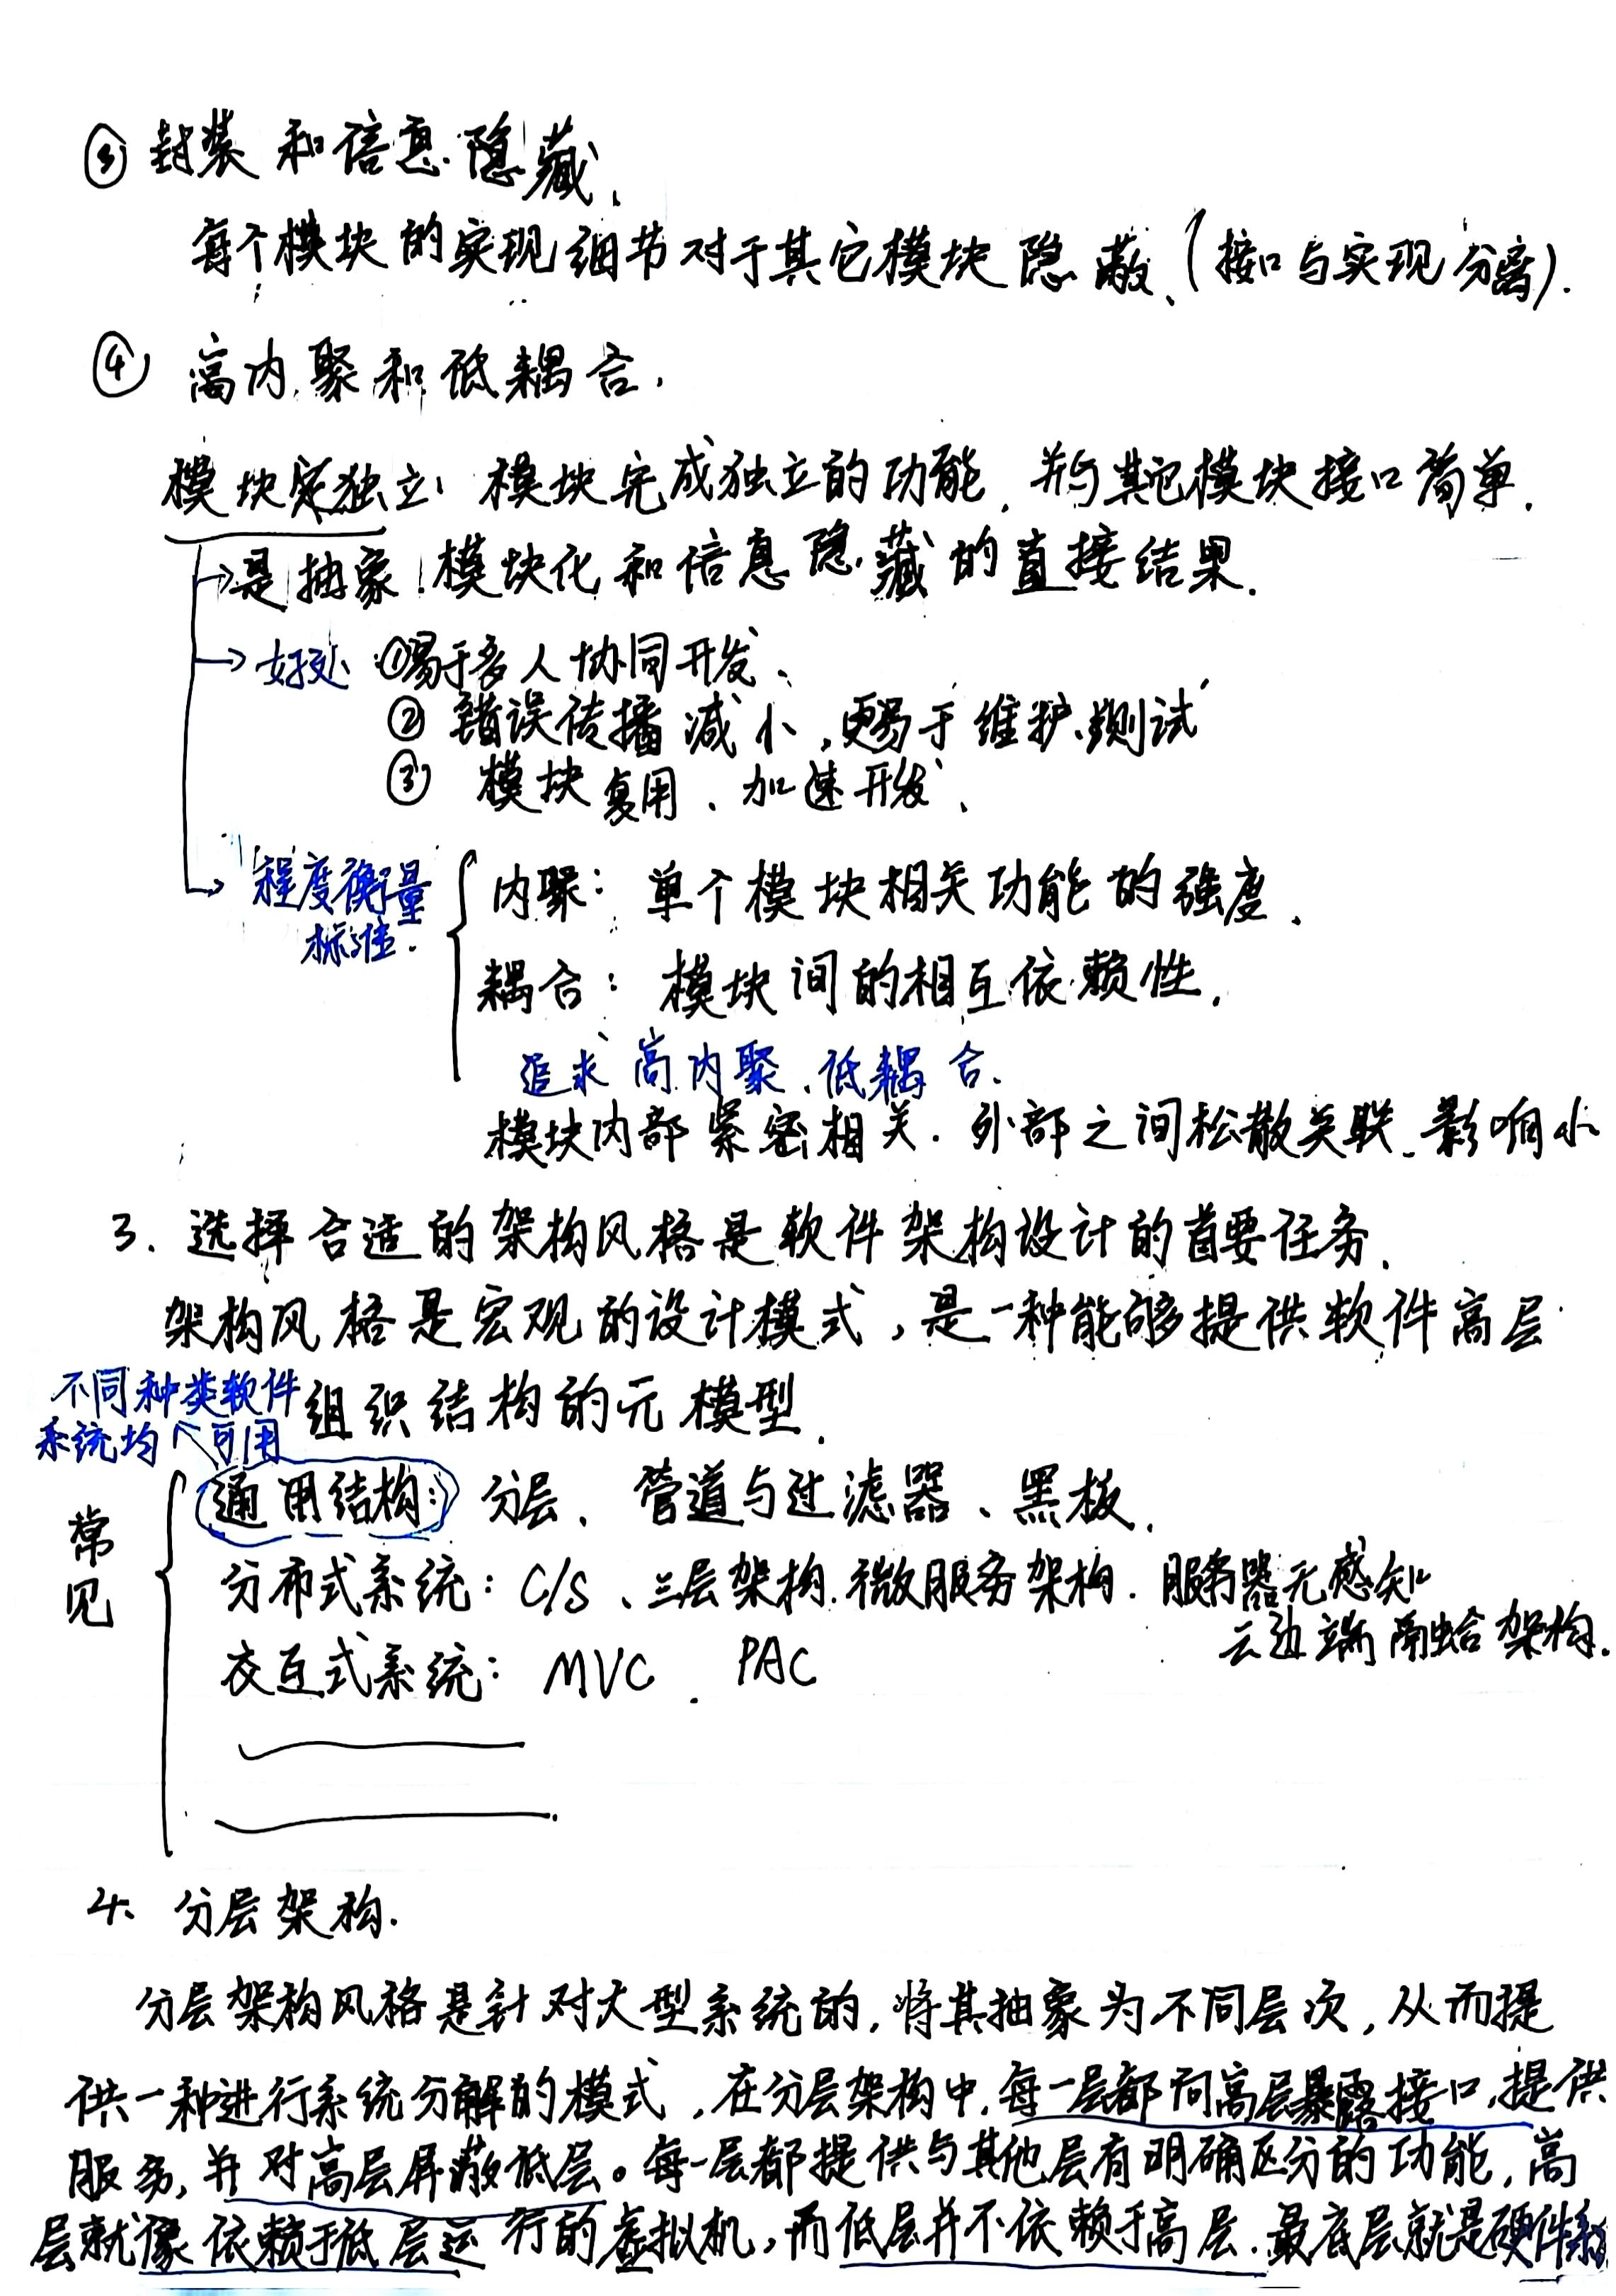 ③ 封装和信息隐藏、
每个模块的实现细节对于其它模块隐蔽、(接口与实现分离).
④ 高内聚和低耦合.
模块独立: 模块完成独立的功能, 并与其它模块接口简单.
→是抽象、模块化和信息隐藏的直接结果.
→好处 ①易于多人协同开发、
② 错误传播减小,更易于维护、测试
③ 模块复用、加速开发、
程度衡量
标准.
内聚: 单个模块相关功能的强度、
耦合: 模块间的相互依赖性.
追求高内聚、低耦合.
模块内部紧密相关. 外部之间松散关联、影响小
3. 选择合适的架构风格是软件架构设计的首要任务、
架构风格是宏观的设计模式,是一种能够提供软件高层
组织结构的元模型.
不同种类软件
系统均可用
常见
通用结构: 分层、管道与过滤器、黑板、
分布式系统: C/S、三层架构. 微服务架构. 服务器无感知
云边端融合架构.
交互式系统: MVC、PAC
4、分层架构.
分层架构风格是针对大型系统的,将其抽象为不同层次,从而提
供一种进行系统分解的模式,在分层架构中,每一层都向高层暴露接口,提供
服务,并对高层屏蔽低层。每一层都提供与其他层有明确区分的功能,高
层就像依赖于低层运行的虚拟机,而低层并不依赖于高层.最底层就是硬件系